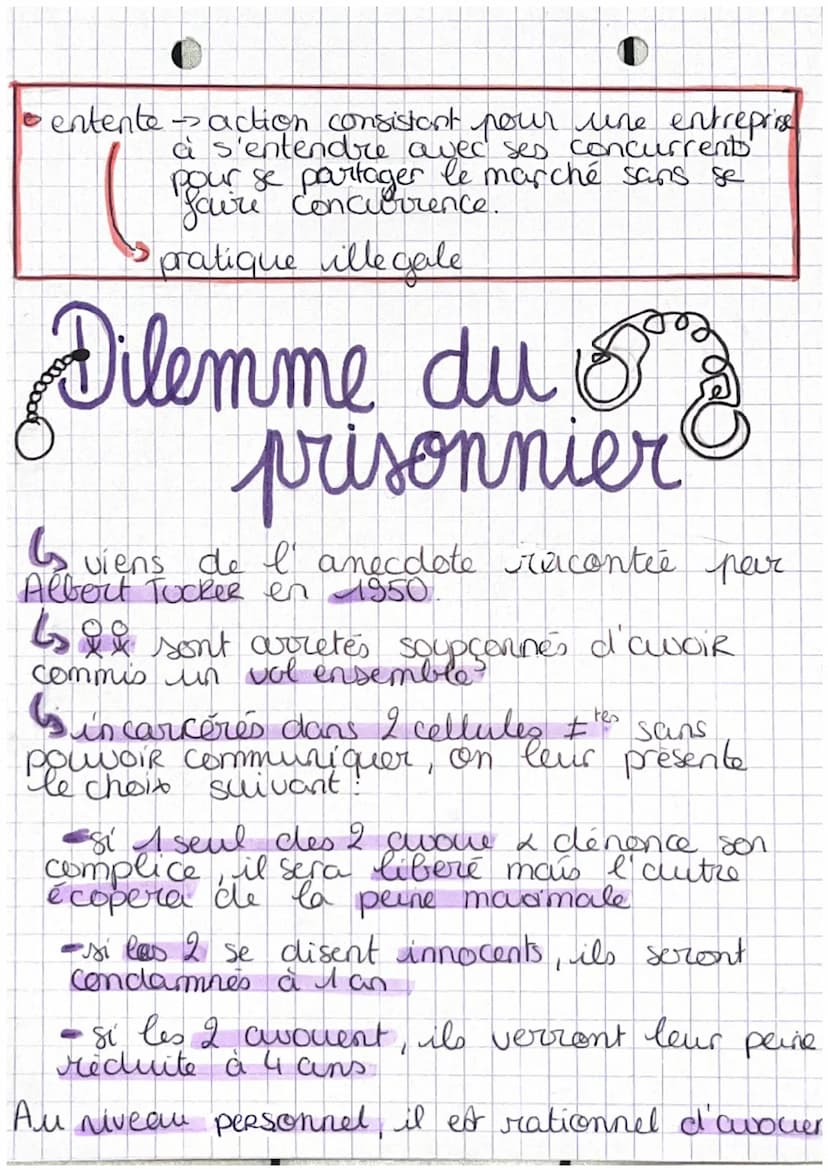 • entente → action consistant pour une entreprise
à s'entendre avec ses concurrents
pour se partager le marché sans se
faire concurrence.
pratique illegale
Dilemme du
prisonnier
↳ viens de l'anecdote racontée par
Albert Tucker en 1950.
↳ sont arretés soupçonnés d'avoir
commis un vol ensemble
↳ incarcérés dans 2 cellules ≠tes sans
pouvoir communiquer, on leur présente
le choix suivant:
- si 1 seul des 2 avoue & dénonce son
complice, il sera libéré mais l'autre
écopera de la peine maximale
- si les 2 se disent innocents, ils seront
condamnés à 1 an
- si les 2 avouent, ils verront leur peine
réduite à 4 ans
Au niveau personnel, il est rationnel d'avouer